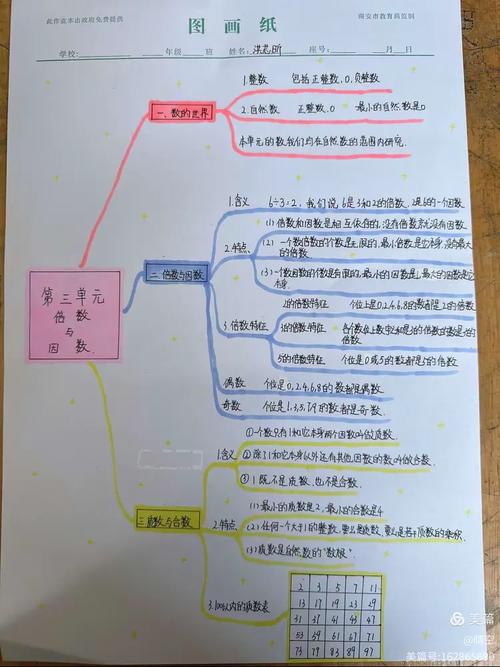 此作业本由政府免费提供
图画纸
南安市教育局监制
学校: 年级 班 姓名: 座号: 月 日
第三单元
倍数
与
因数
一、数的世界
1.整数 包括正整数,0,负整数
2.自然数 正整数、0 最小的自然数是0
本单元的数,我们均在自然数的范围内研究.
二、倍数与因数
1.含义 6÷3=2,我们说6是3和2的倍数,2是6的一个因数
2.特点
(1)倍数和因数是相互依存的,没有倍数就没有因数
(2)一个数倍数的个数是无限的,最小倍数是它本身,没有最大
的倍数.
(3)一个数因数的个数是有限的,最小的因数是1,最大的因数是它
本身.
3.倍数特征
2的倍数特征 个位上是0,2,4,6,8的数都是2的倍数
3的倍数特征 各个数位上数字和是3的倍数的数是3的倍数
5的倍数特征 个位是0或5的数都是5的倍数
偶数 个位是0,2,4,6,8的数都是偶数
奇数 个位是1,3,5,7,9的数都是奇数
三、质数与合数
1.含义
①一个数只有1和它本身两个因数叫做质数.
②除了1和它本身以外还有其他因数的数叫做合数.
③1既不是质数,也不是合数.
2.特点
(1)最小的质数是2,最小的合数是4
(2)任何一个大于1的整数,要么是质数,要么是若干质数的乘积.
(3)质数是自然数的"数根"
3.100以内的质数表
2 3 5 7 11
13 17 19 23 29
31 37 41 43 47
53 59 61 67 71
73 79 83 89 97
美篇
@悟空
美篇号:162865880